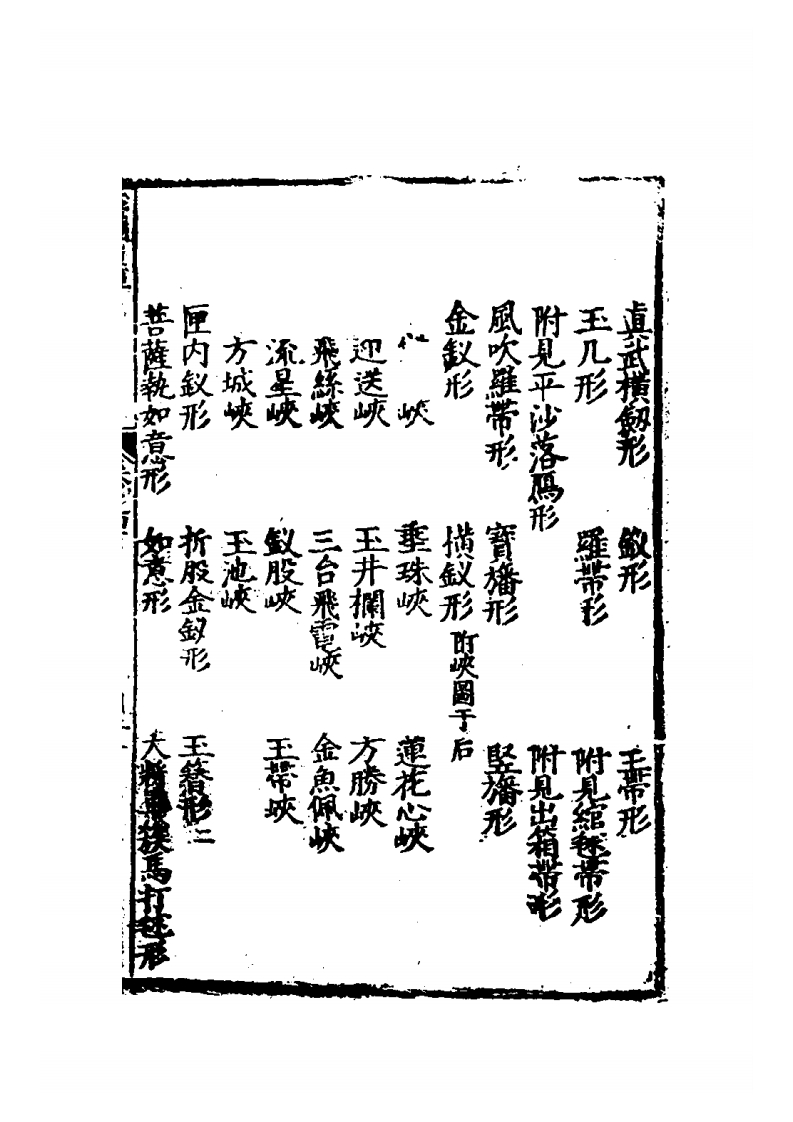 真武橫劔形 釵形 玉帶形
玉几形 羅帶形 附見綰毬帶形
附見平沙落鴈形 附見出箱帶形
風吹羅帶形 寳旛形 竪旛形
金釵形 橫釵形 附峽圖于后
峽 垂珠峽 蓮花心峽
迎送峽 玉井欄峽 方勝峽
飛絲峽 三台飛電峽 金魚佩峽
流星峽 釵股峽 玉帶峽
方城峽 玉池峽
匣内釵形 折股金釵形 玉簪形二
菩薩執如意形 如意形 大將 馬打毬形